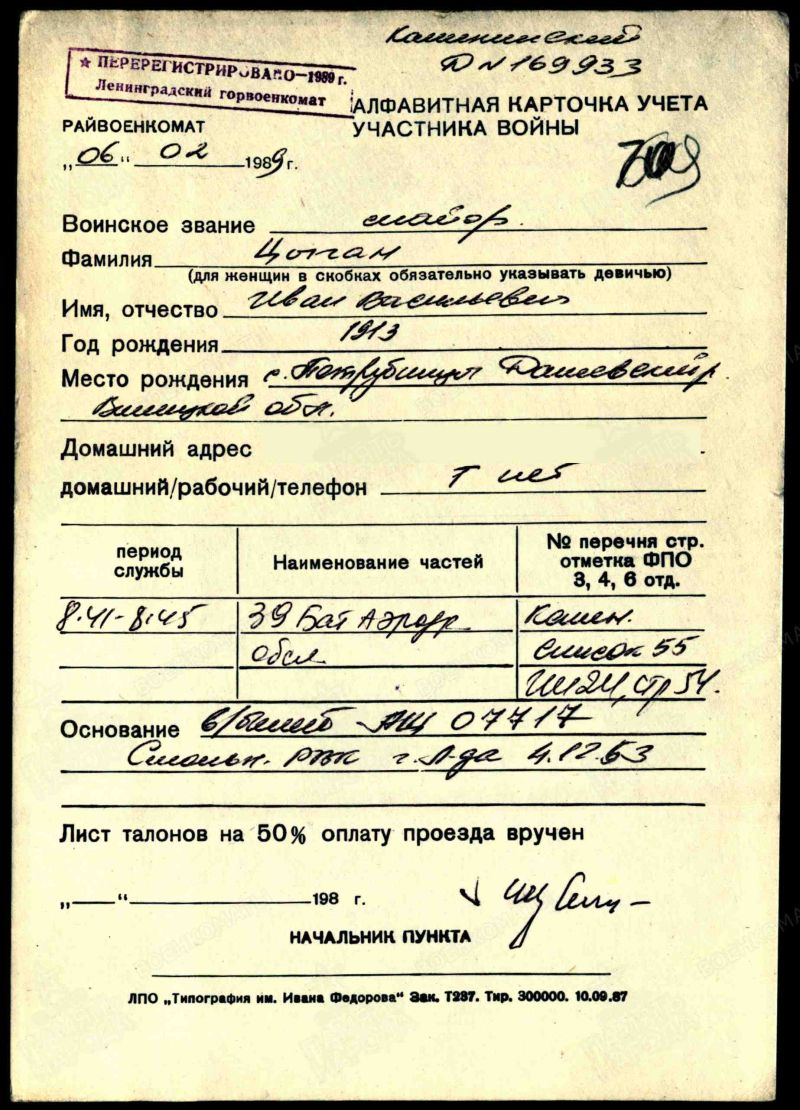 Калининский
Д № 169933
★ ПЕРЕРЕГИСТРИРОВАНО—1989 г.
Ленинградский горвоенкомат
АЛФАВИТНАЯ КАРТОЧКА УЧЕТА
УЧАСТНИКА ВОЙНЫ
РАЙВОЕНКОМАТ
„06“ 02 1989 г.
Воинское звание майор.
Фамилия Цыган
(для женщин в скобках обязательно указывать девичью)
Имя, отчество Иван Васильевич
Год рождения 1913
Место рождения с. Дашевский р.
Виницкой обл.
Домашний адрес
домашний/рабочий/телефон т нет
период службы
Наименование частей
№ перечня стр. отметка ФПО 3, 4, 6 отд.
8.41-8.45 39 Бат Аэродр.
обсл.
список 55
стр 54.
Основание в/билет 07717
Смольн. РВК г. Л-да 4.12.63
Лист талонов на 50% оплату проезда вручен
„—“ 198 г.
НАЧАЛЬНИК ПУНКТА
ЛПО „Типография им. Ивана Федорова“ Зак. Т237. Тир. 300000. 10.09.87